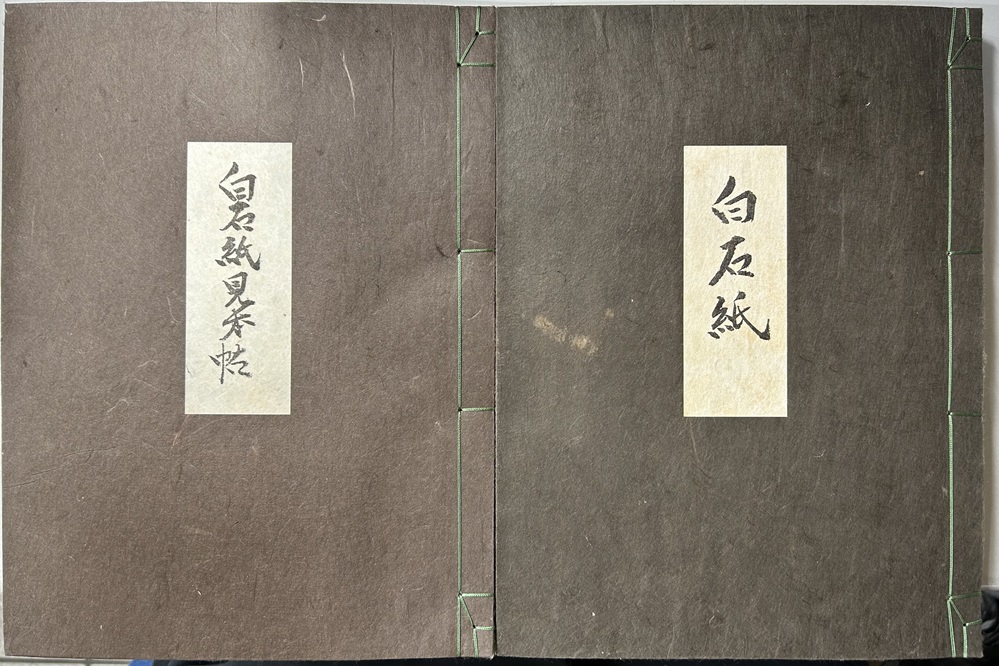 白石紙
白石紙見本帖